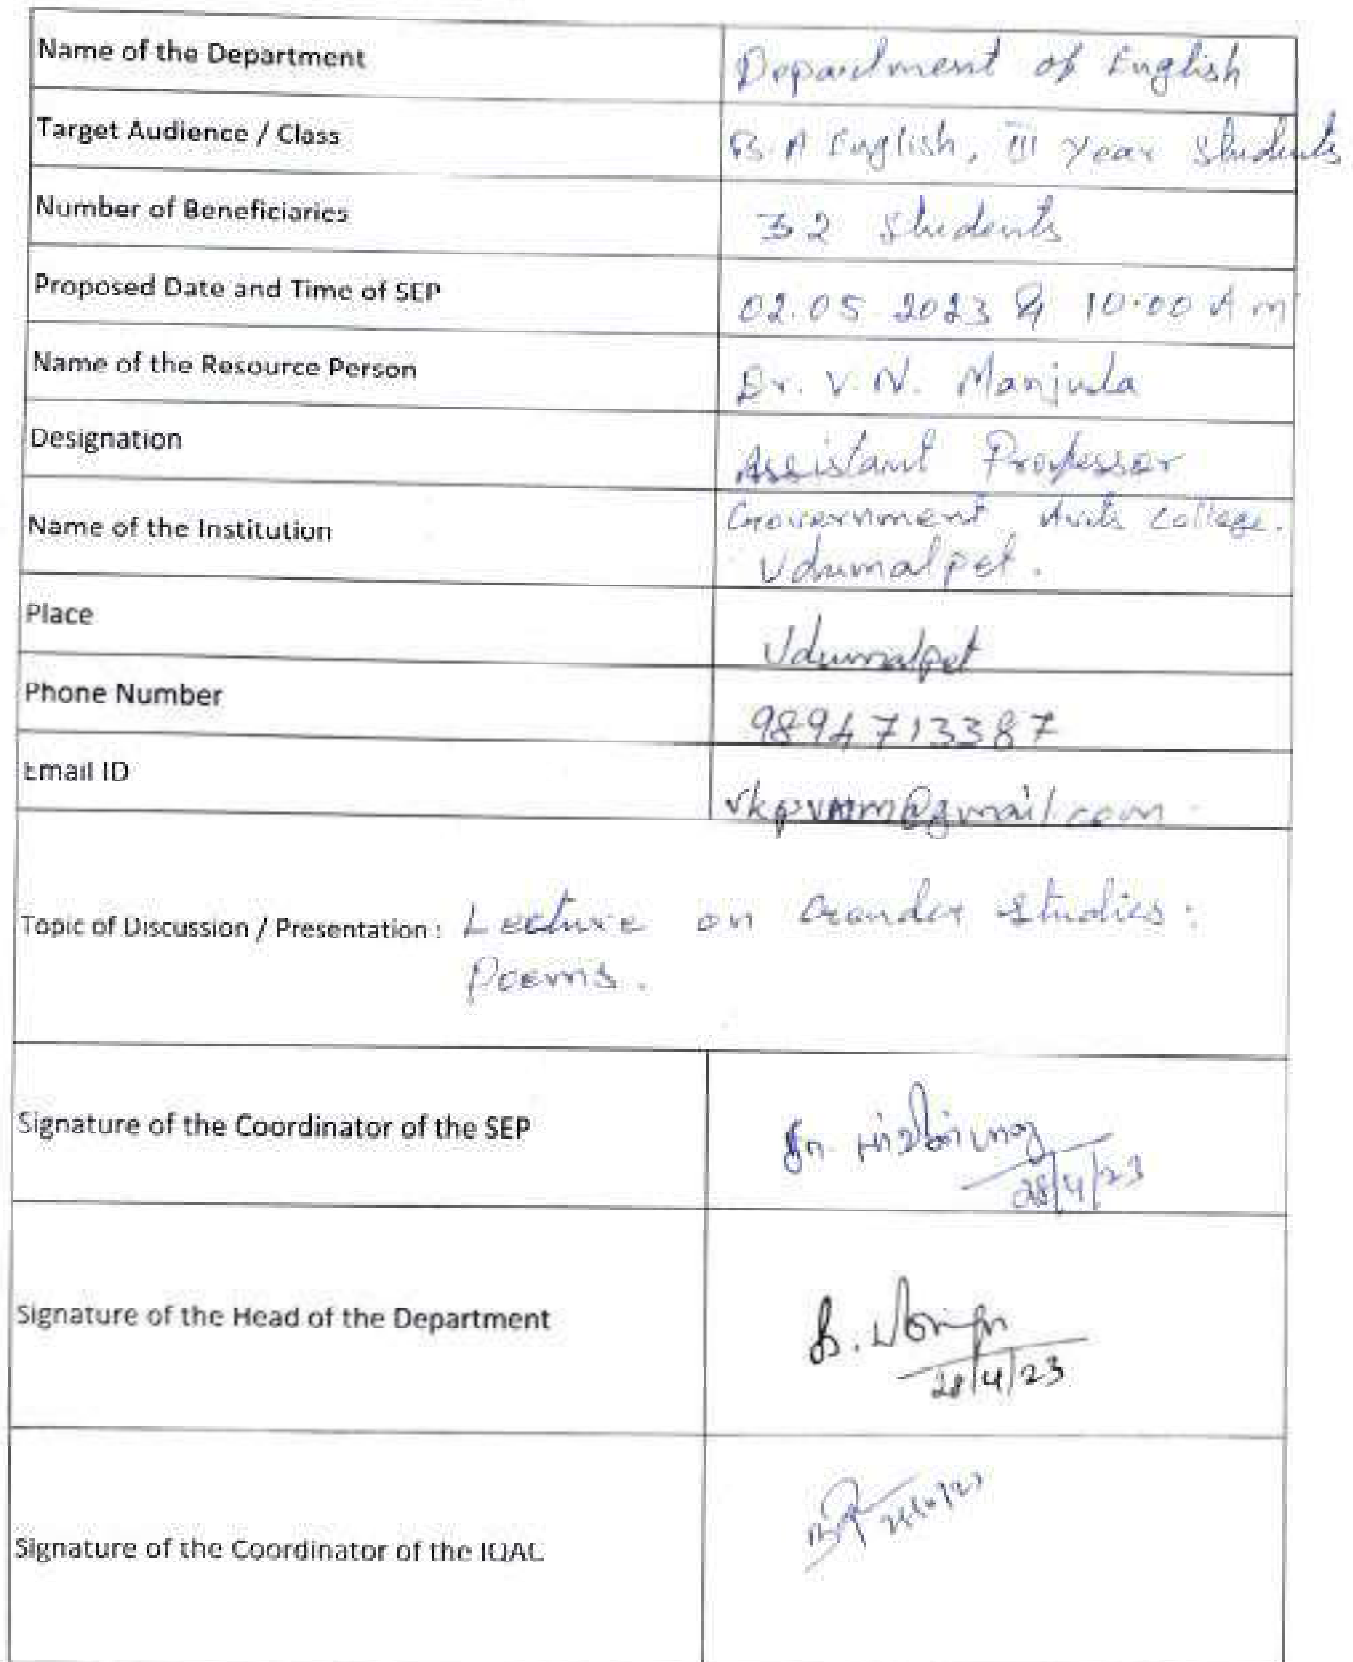 Name of the Department Department of English
Target Audience / Class B.A English, III Year Students
Number of Beneficiaries 32 Students
Proposed Date and Time of SEP 02.05 2023 & 10.00 A m
Name of the Resource Person Dr. V. N. Manjula
Designation Assistant Professor
Name of the Institution Government Arts College.
Udumalpet.
Place Udumalpet
Phone Number 9894713387
Email ID @gmail.com
Topic of Discussion / Presentation : Lecture on Gender Studies :
Poems.
Signature of the Coordinator of the SEP
28/4/23
Signature of the Head of the Department
28/4/23
Signature of the Coordinator of the IQAC